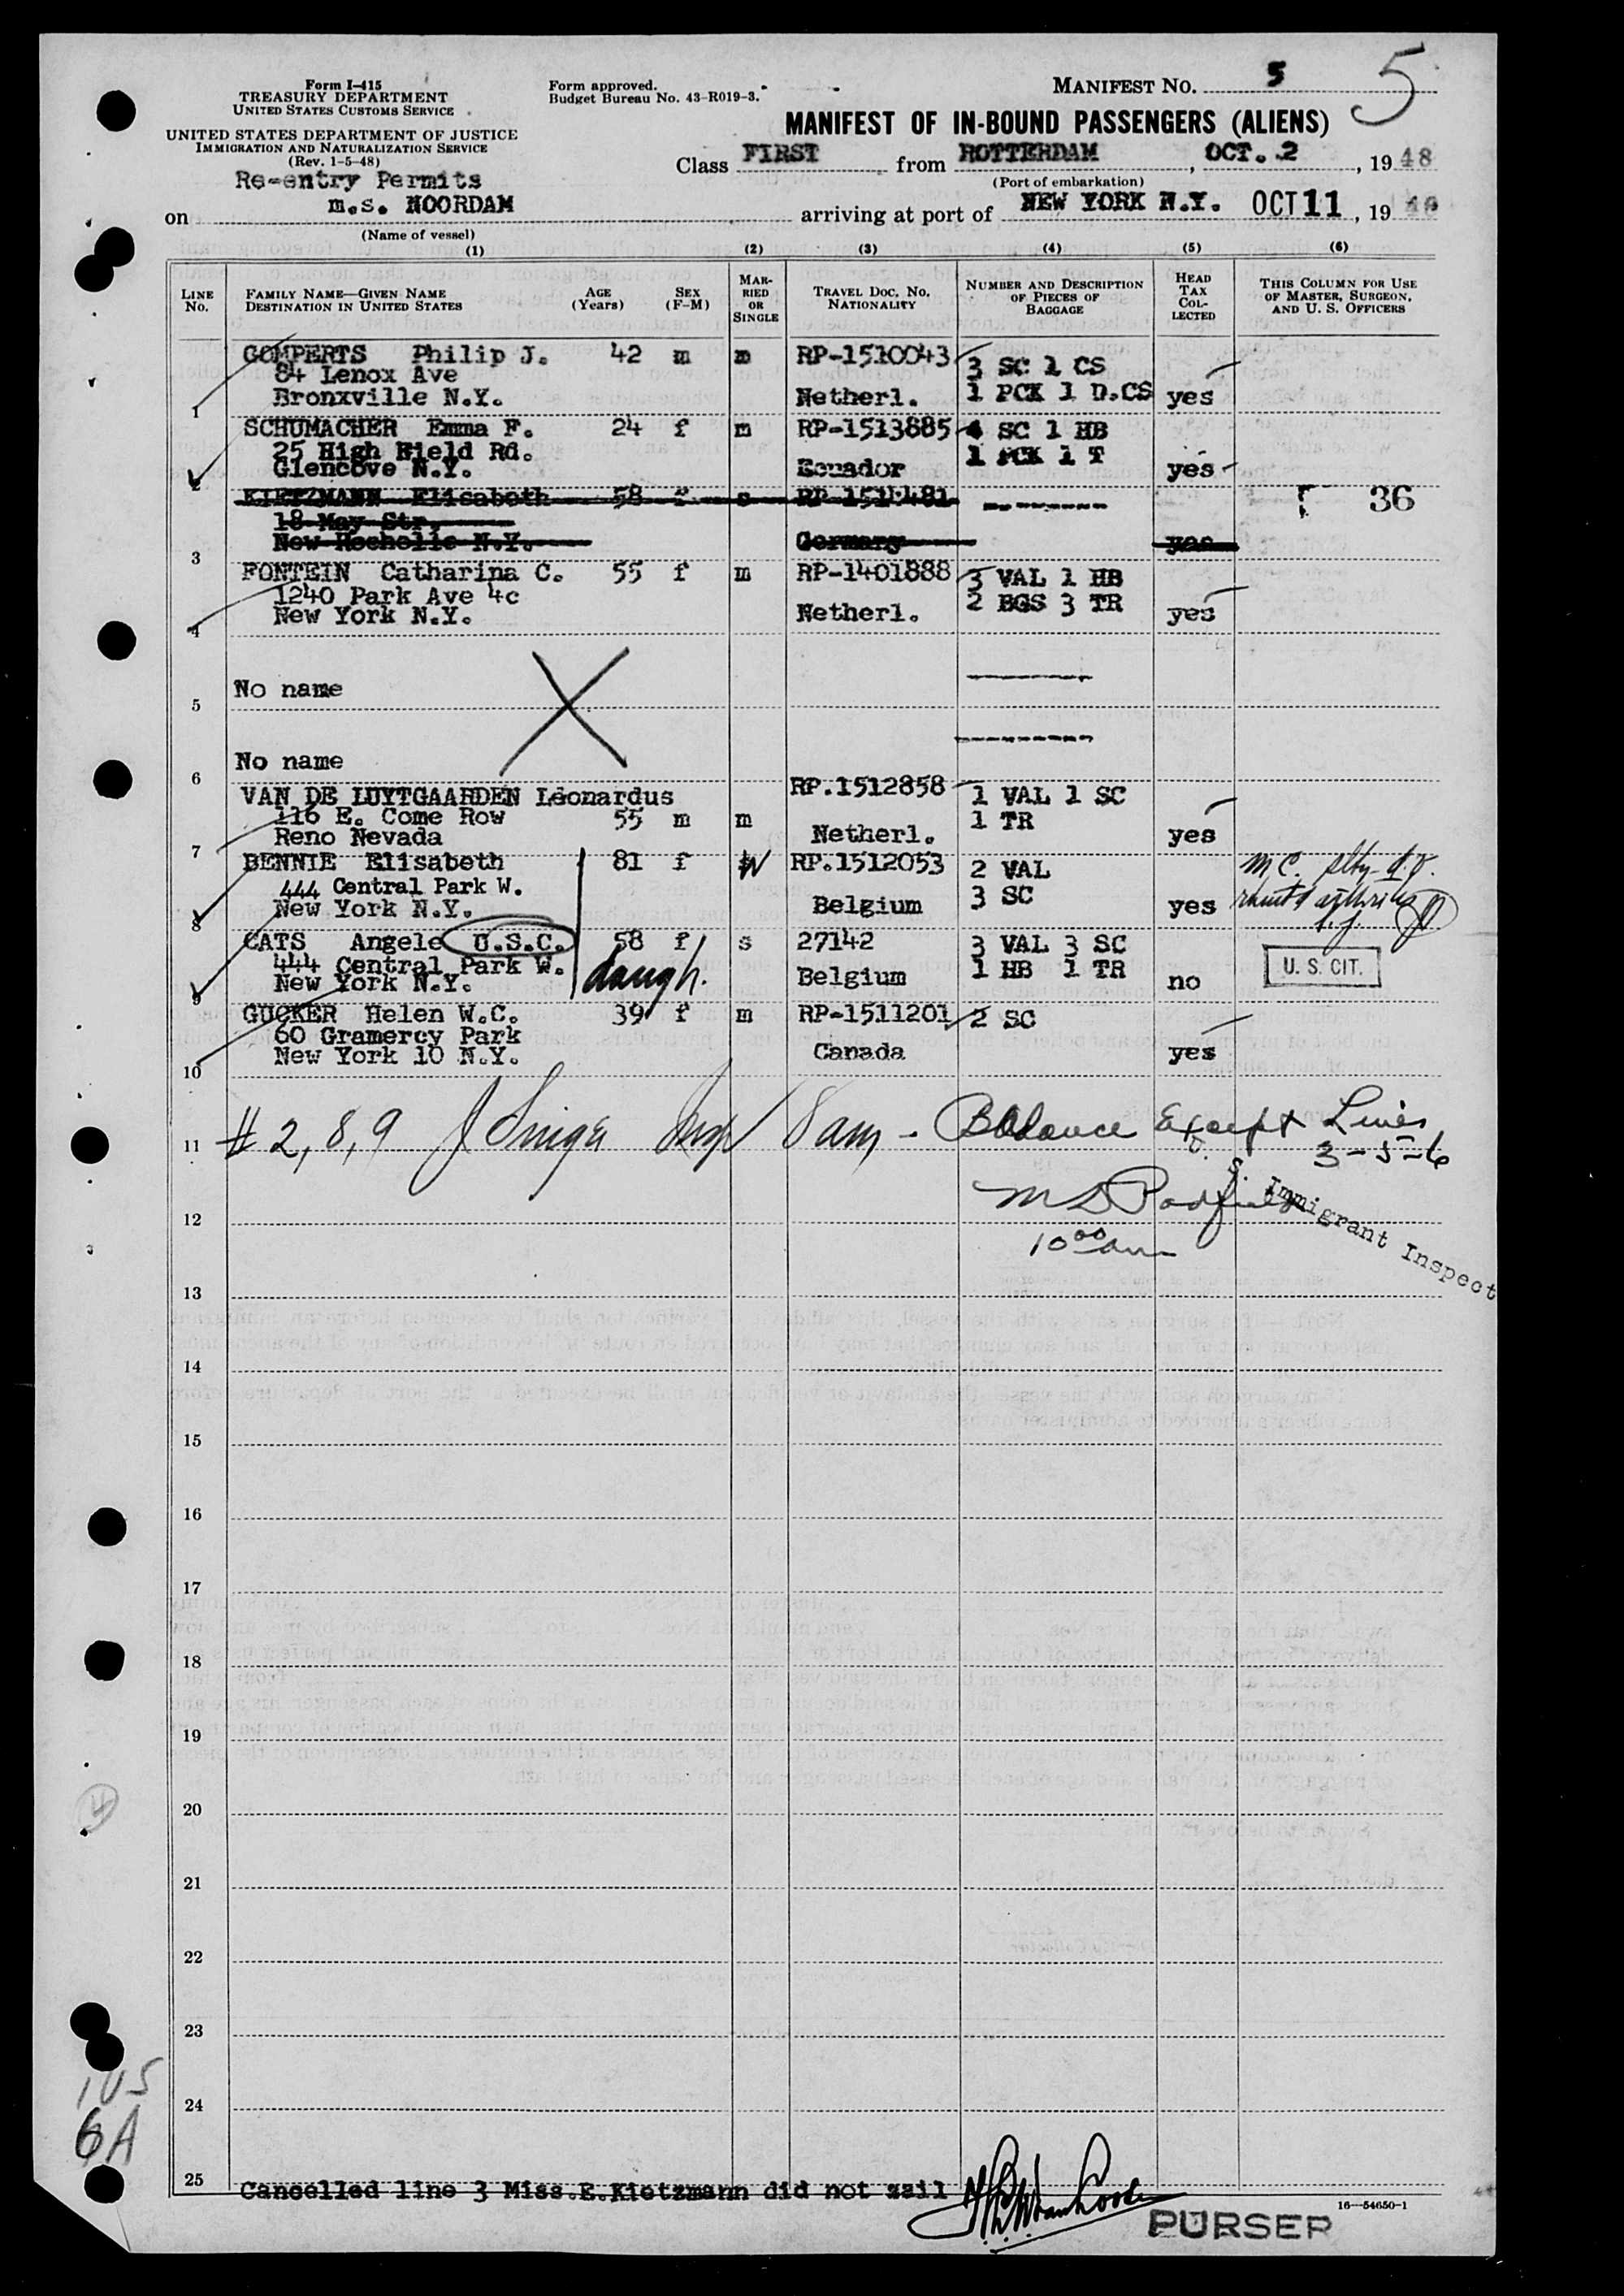 Form I-415
TREASURY DEPARTMENT
UNITED STATES CUSTOMS SERVICE
UNITED STATES DEPARTMENT OF JUSTICE
IMMIGRATION AND NATURALIZATION SERVICE
(Rev. 1-5-48)
Form approved.
Budget Bureau No. 43-R019-3.
MANIFEST NO. 5
5
MANIFEST OF IN-BOUND PASSENGERS (ALIENS)
Class FIRST from ROTTERDAM, OCT. 2, 1948
(Port of embarkation)
Re-entry Permits
on m.s. NOORDAM arriving at port of NEW YORK N.Y. OCT 11, 19
(Name of vessel)
(1) (2) (3) (4) (5) (6)
LINE NO.
FAMILY NAME—GIVEN NAME
DESTINATION IN UNITED STATES
AGE (Years)
SEX (F-M)
MARRIED OR SINGLE
TRAVEL DOC. NO.
NATIONALITY
NUMBER AND DESCRIPTION OF PIECES OF BAGGAGE
HEAD TAX COLLECTED
THIS COLUMN FOR USE OF MASTER, SURGEON, AND U. S. OFFICERS
GOMPERTS Philip J. 42 m m RP-1510043 3 SC 1 CS
84 Lenox Ave
1 Bronxville N.Y. Netherl. 1 PCK 1 D.CS yes
SCHUMACHER Emma F. 24 f m RP-1513885 4 SC 1 HB
25 High Field Rd. 1 PCK 1 T
2 Glencove N.Y. Ecuador yes
KIETZMANN Elisabeth 58 f s RP-1511481 --------- 36
18 May Str.
3 New Rochelle N.Y. Germany yes
FONTEIN Catharina C. 55 f m RP-1401888 3 VAL 1 HB
1240 Park Ave 4c 2 BGS 3 TR
4 New York N.Y. Netherl. yes
5 No name ---------
6 No name ---------
VAN DE LUYTGAARDEN Léonardus RP.1512858 1 VAL 1 SC
116 E. Come Row 55 m m 1 TR
7 Reno Nevada Netherl. yes
BENNIE Elisabeth 81 f W RP.1512053 2 VAL
444 Central Park W. 3 SC
8 New York N.Y. Belgium yes
CATS Angele U.S.C. 58 f s 27142 3 VAL 3 SC
444 Central Park W. daugh. 1 HB 1 TR U. S. CIT.
9 New York N.Y. Belgium no
GUCKER Helen W.C. 39 f m RP-1511201 2 SC
60 Gramercy Park
10 New York 10 N.Y. Canada yes
11 # 2, 8, 9 J Singer Insp 8 am - Balance Except Lines
3-5-6
U. S. Immigrant Inspect
12
10 00 am
13
14
15
16
17
18
19
20
21
22
23
24
25 Cancelled line 3 Miss.E.Kietzmann did not sail
PURSER
16—54650-1
4
105
6A